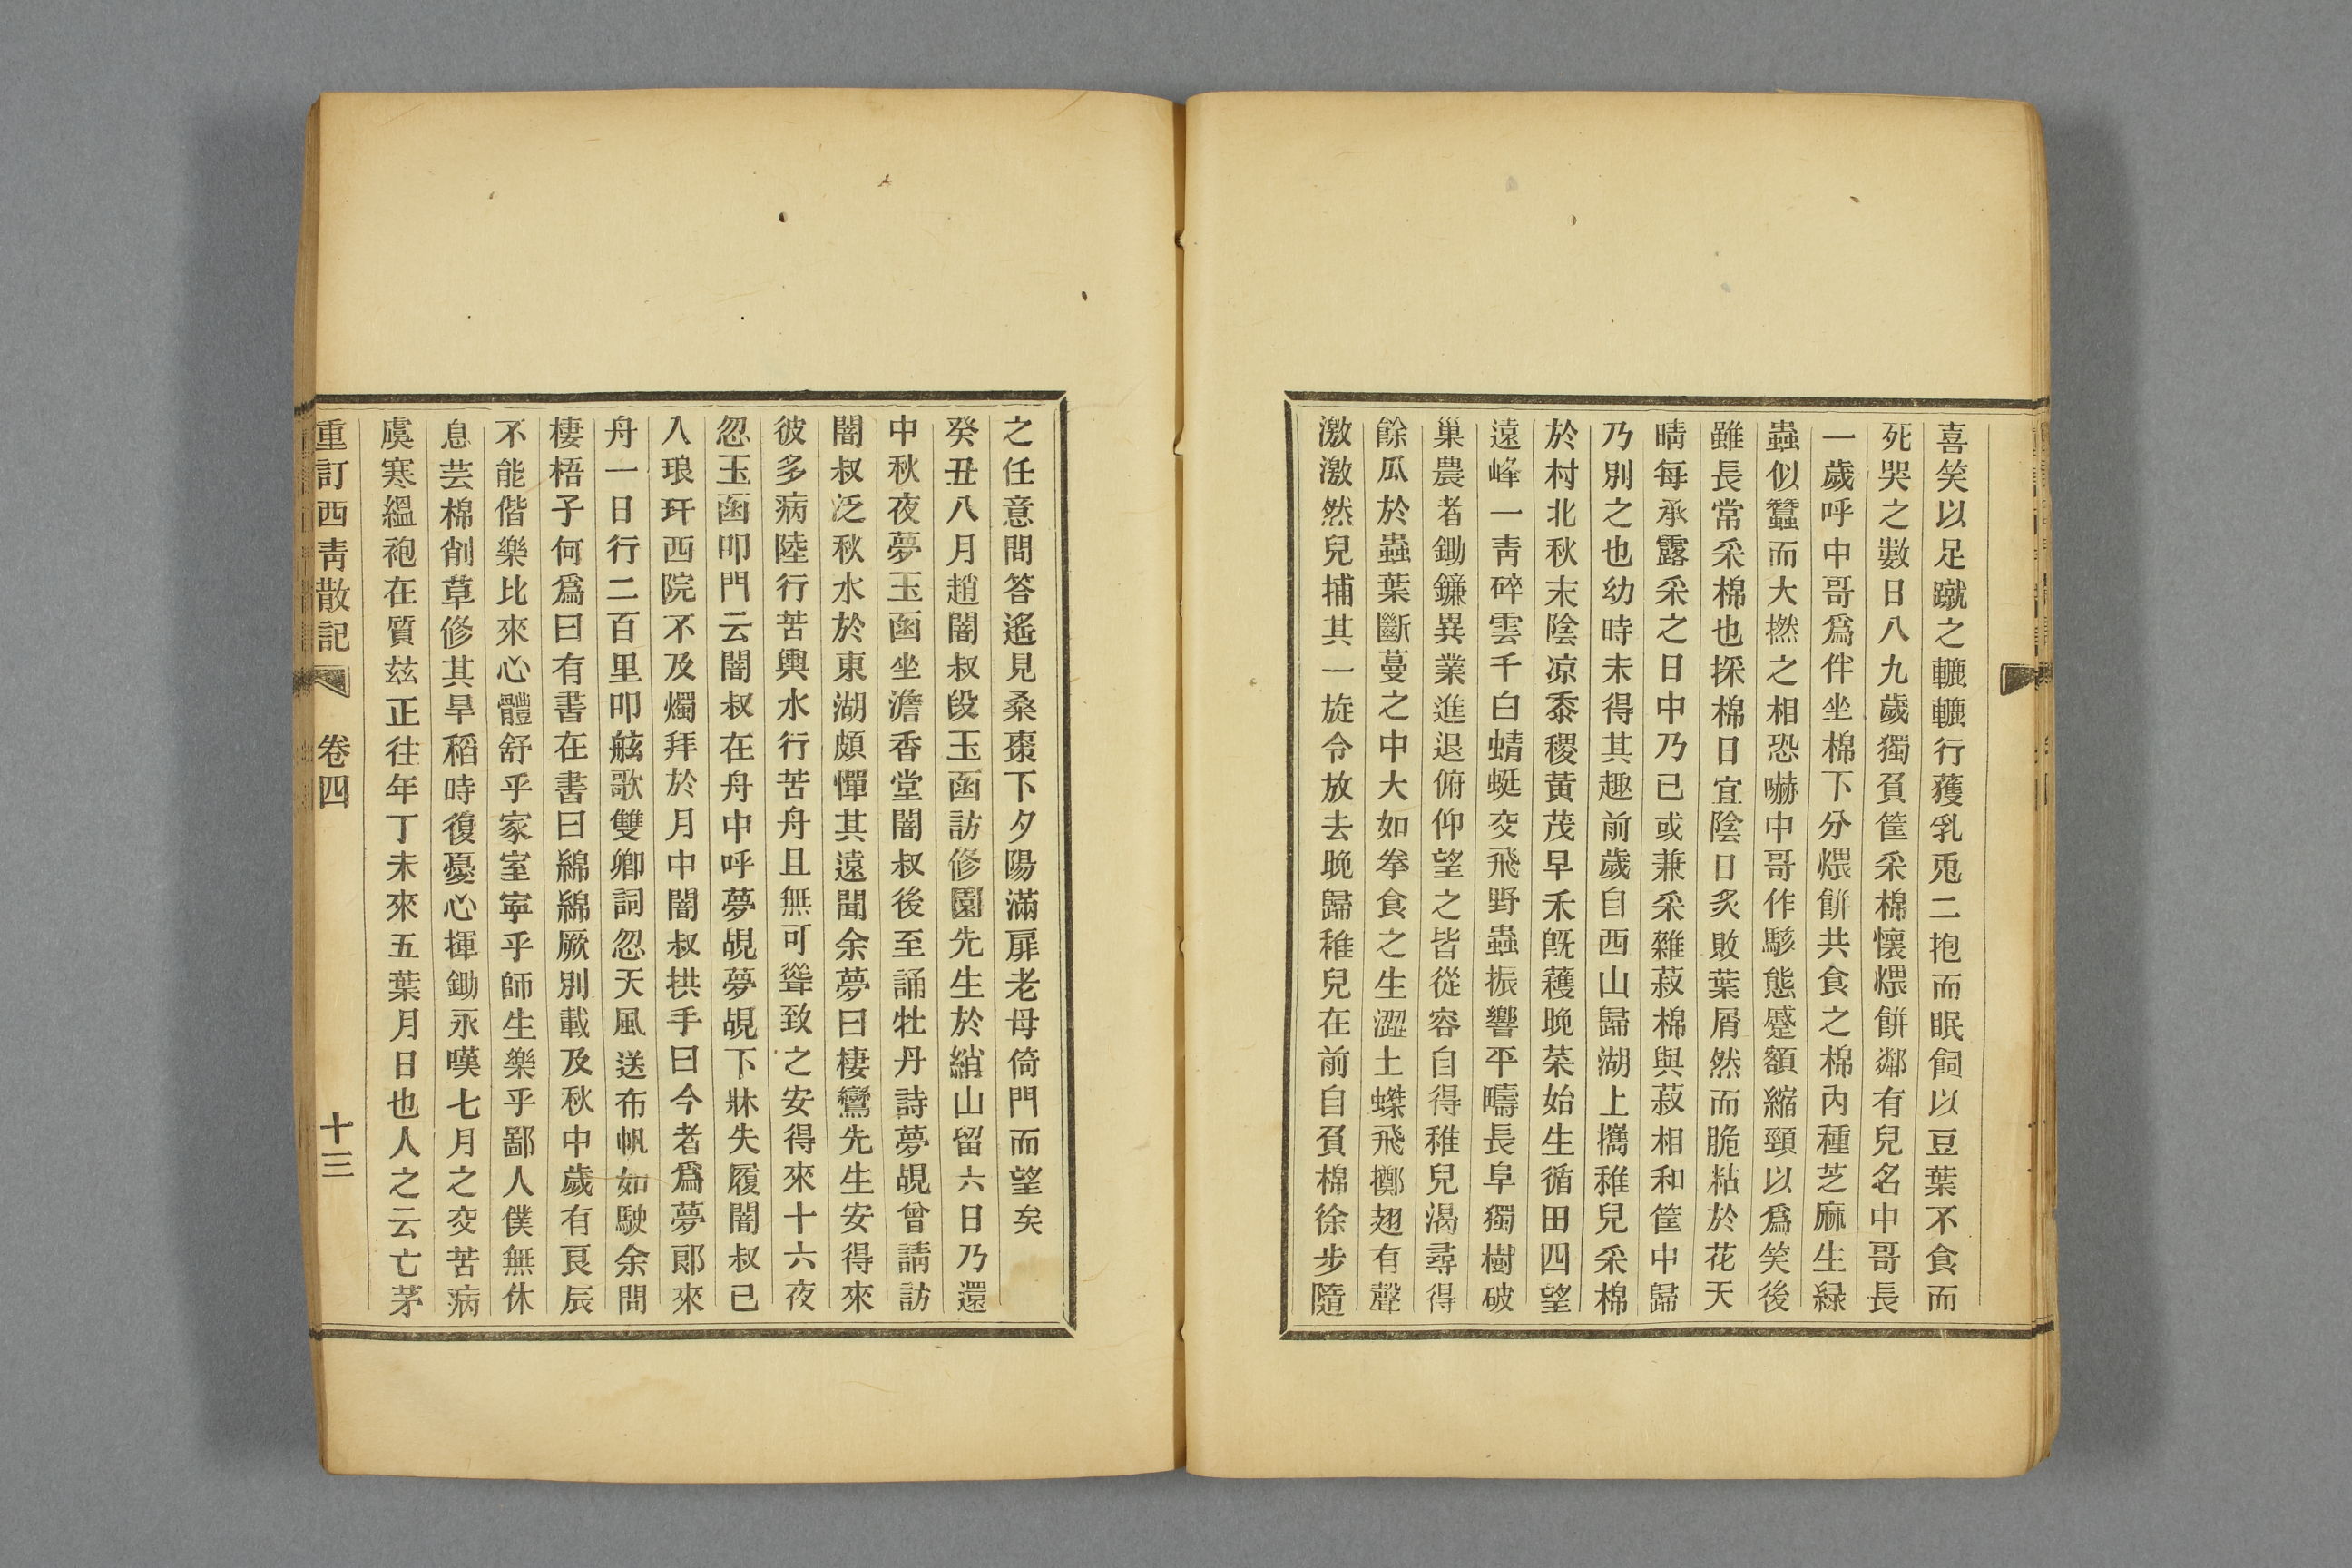 喜笑以足蹴之轆轆行獲乳兎二抱而眠飼以豆葉不食而
死哭之數日八九歲獨負筐采棉懷煨餅鄰有兒名中哥長
一歲呼中哥爲伴坐棉下分煨餅共食之棉內種芝麻生緑
蟲似蠶而大撚之相恐嚇中哥作駭態蹙額縮頸以爲笑後
雖長常采棉也採棉日宜陰日炙敗葉屑然而脆粘於花天
晴每承露采之日中乃已或兼采雜菽棉與菽相和筐中歸
乃別之也幼時未得其趣前歲自西山歸湖上攜稚兒采棉
於村北秋末陰凉黍稷黃茂早禾旣穫晚菜始生循田四望
遠峰一靑碎雲千白蜻蜓交飛野蟲振響平疇長阜獨樹破
巢農者鋤鐮異業進退俯仰望之皆從容自得稚兒渴尋得
餘瓜於蟲葉斷蔓之中大如拳食之生澀土蠂飛擲翅有聲
激激然兒捕其一旋令放去晚歸稚兒在前自負棉徐步隨
之任意問答遙見桑棗下夕陽滿扉老母倚門而望矣
癸丑八月趙闇叔段玉函訪修園先生於綃山留六日乃還
中秋夜夢玉函坐澹香堂闇叔後至誦牡丹詩夢覘曾請訪
闇叔泛秋水於東湖頗憚其遠聞余夢曰棲鸞先生安得來
彼多病陸行苦輿水行苦舟且無可聳致之安得來十六夜
忽玉函叩門云闇叔在舟中呼夢覘夢覘下牀失履闇叔已
入琅玕西院不及燭拜於月中闇叔拱手曰今者爲夢郎來
舟一日行二百里叩舷歌雙卿詞忽天風送布帆如駛余問
棲梧子何爲曰有書在書曰綿綿厥別載及秋中歲有良辰
不能偕樂比來心體舒乎家室寧乎師生樂乎鄙人僕無休
息芸棉削草修其旱稻時復憂心揮鋤永嘆七月之交苦病
虞寒縕袍在質茲正往年丁未來五葉月日也人之云亡茅
重訂西靑散記 卷四 十三